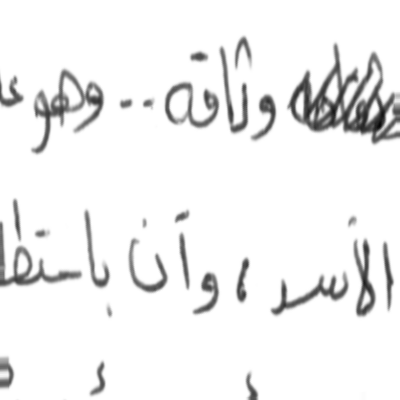 وثاقه .. وهو
الأسد ، وأن باستط